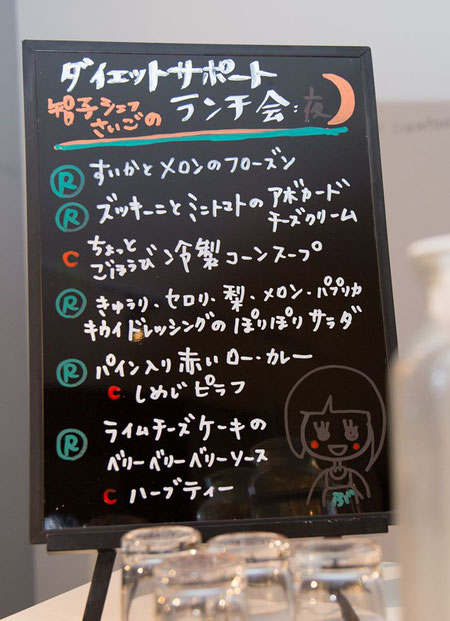 ダイエットサポート
智子シェフ
さいごの
ランチ会:夜
R すいかとメロンのフローズン
R ズッキーニとミニトマトのアボカード
チーズクリーム
C ちょっと
ごほうび
冷製コーンスープ
R きゅうり、セロリ、梨、メロン、パプリカ
キウイドレッシングのぽりぽりサラダ
R パイン入り赤いロー・カレー
C しめじピラフ
R ライムチーズケーキの
ベリーベリーベリーソース
C ハーブティー